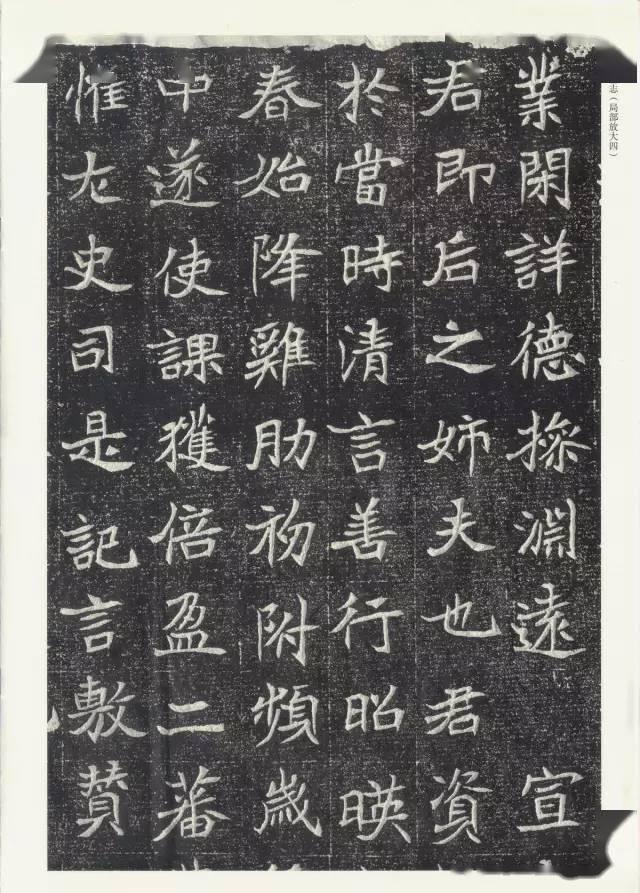 業閑詳德操淵遠 宣
君即后之姉夫也君資
於當時清言善行昭暎
春始降雞肋初附頻歲
中遂使課獲倍盈二蕃
惟尤史司是記言敷贊
志（局部放大四）